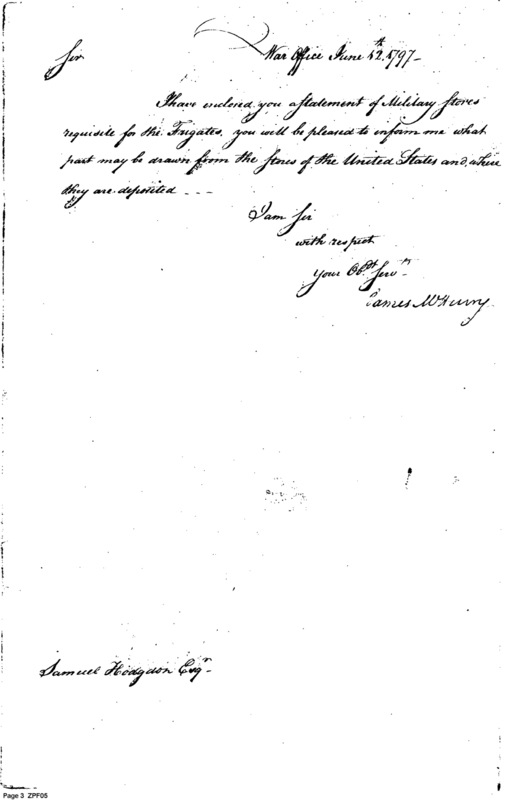 War Office June 12th 1797
Sir
I have enclosed you a Statement of Military Stores
requisite for the Frigates. you will be pleased to inform me what
part may be drawn from the Stores of the United States and where
they are deposited - - -
I am Sir
with respect
Your Obdt Servt
James McHenry
Samuel Hodgdon Esqr
Page 3 ZPF05